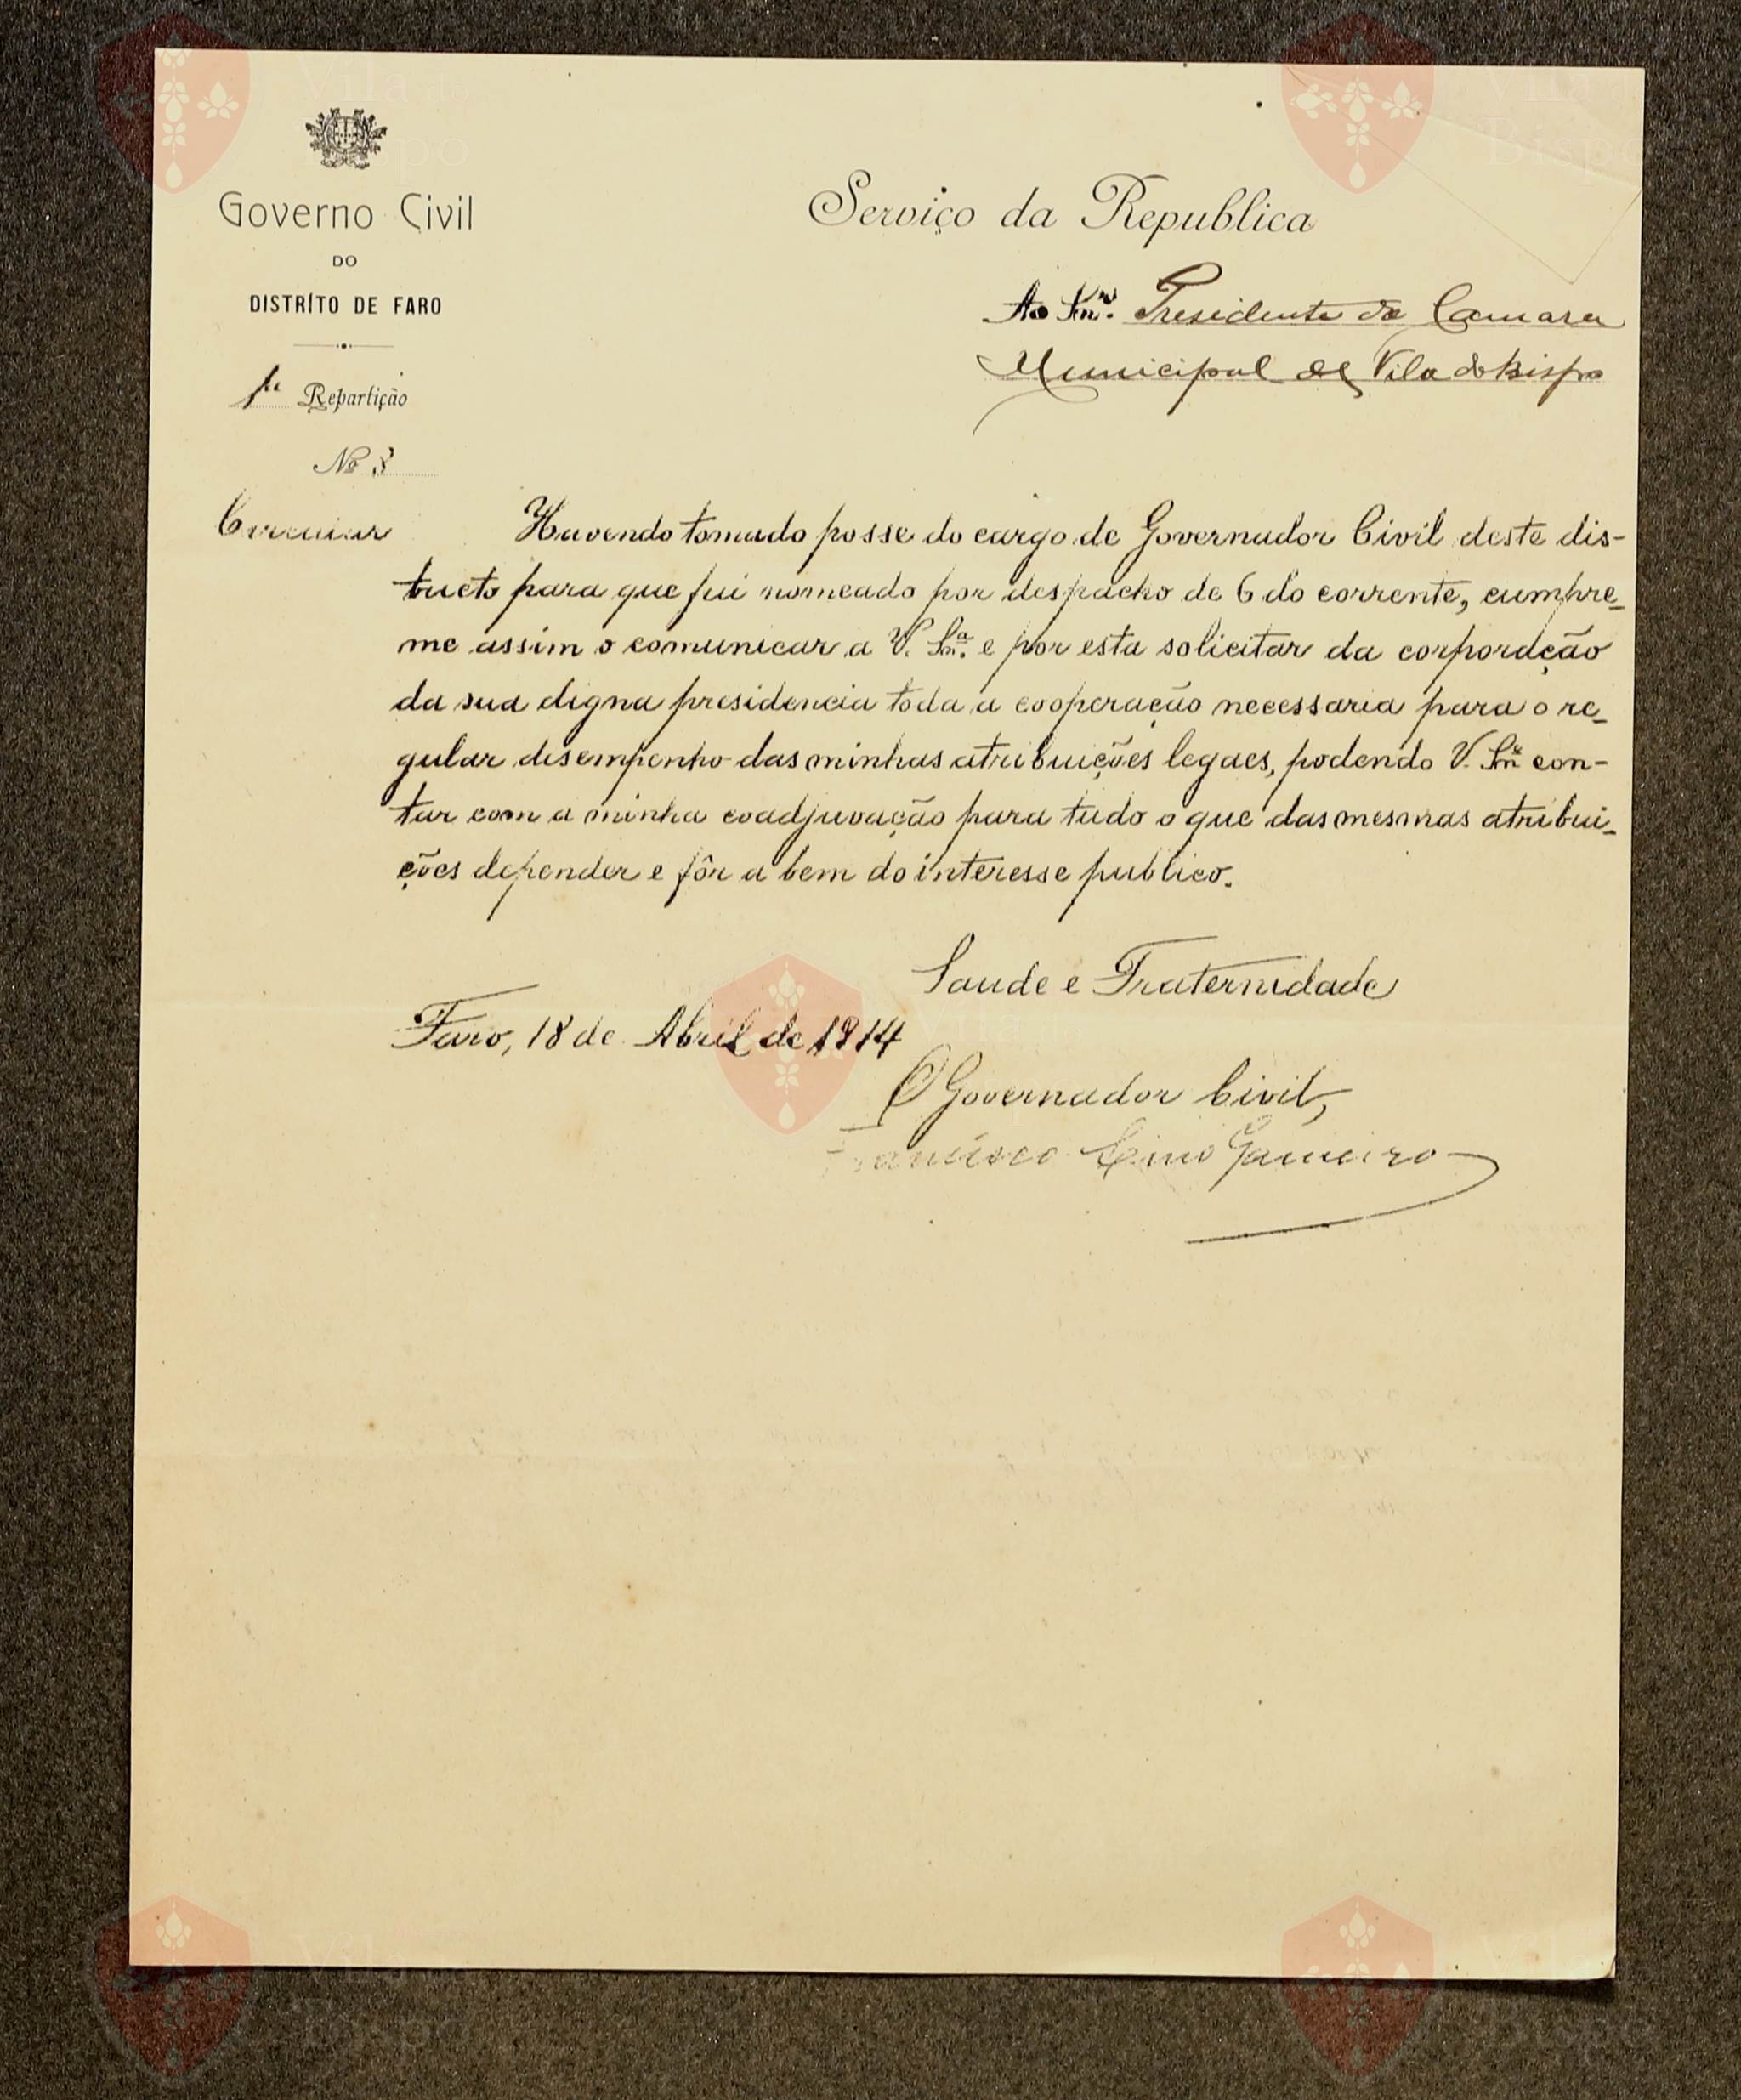 Governo Civil
DO
DISTRÍTO DE FARO
1ª Repartição
Nº 3
Circular
Serviço da Republica
Ao Snr. Presidente da Camara
Municipal de Vila do Bispo
Havendo tomado posse do cargo de Governador Civil deste dis-
tricto para que fui nomeado por despacho de 6 do corrente, cumpre-
me assim o comunicar a V. Sn.ª e por esta solicitar da corporação
da sua digna presidencia toda a cooperação necessaria para o re-
gular desempenho das minhas atribuições legaes, podendo V. Snª con-
tar com a minha coadjuvação para tudo o que das mesmas atribui-
ções depender e fôr a bem do interesse publico.
Saude e Fraternidade
Faro, 18 de Abril de 1914
O Governador Civil,
Francisco Gameiro
Vila do
Bispo